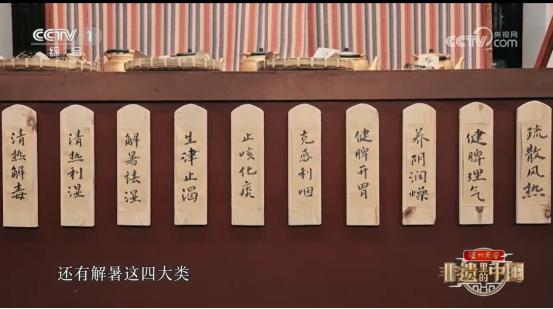 CCTV 1
综合
CCTV.com
央视网
清热解毒
清热利湿
解暑祛湿
生津止渴
止咳化痰
克感利咽
健脾开胃
养阴润燥
健脾理气
疏散风热
还有解暑这四大类
泸州老窖
非遗里的中国